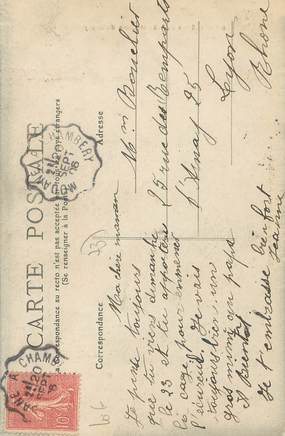 CARTE POSTALE
La Correspondance au recto n'est pas acceptée par tous les pays étrangers
(Se renseigner à la Poste)
Correspondance
Adresse
Ma chère maman
Je pense toujours
que tu viens dimanche
le 23 et tu apporteras
la cage pour emmener
l'écureuil. Je vais
toujours bien, un
gros mimi qui
A Bientôt
Je t'embrasse bien fort
Jeanne
Mme Bouclier
25 rue des Remparts
d'Ainay 25
Lyon
Rhône
CHAMBERY
SEPT
06
CHAM
20
SEPT
10